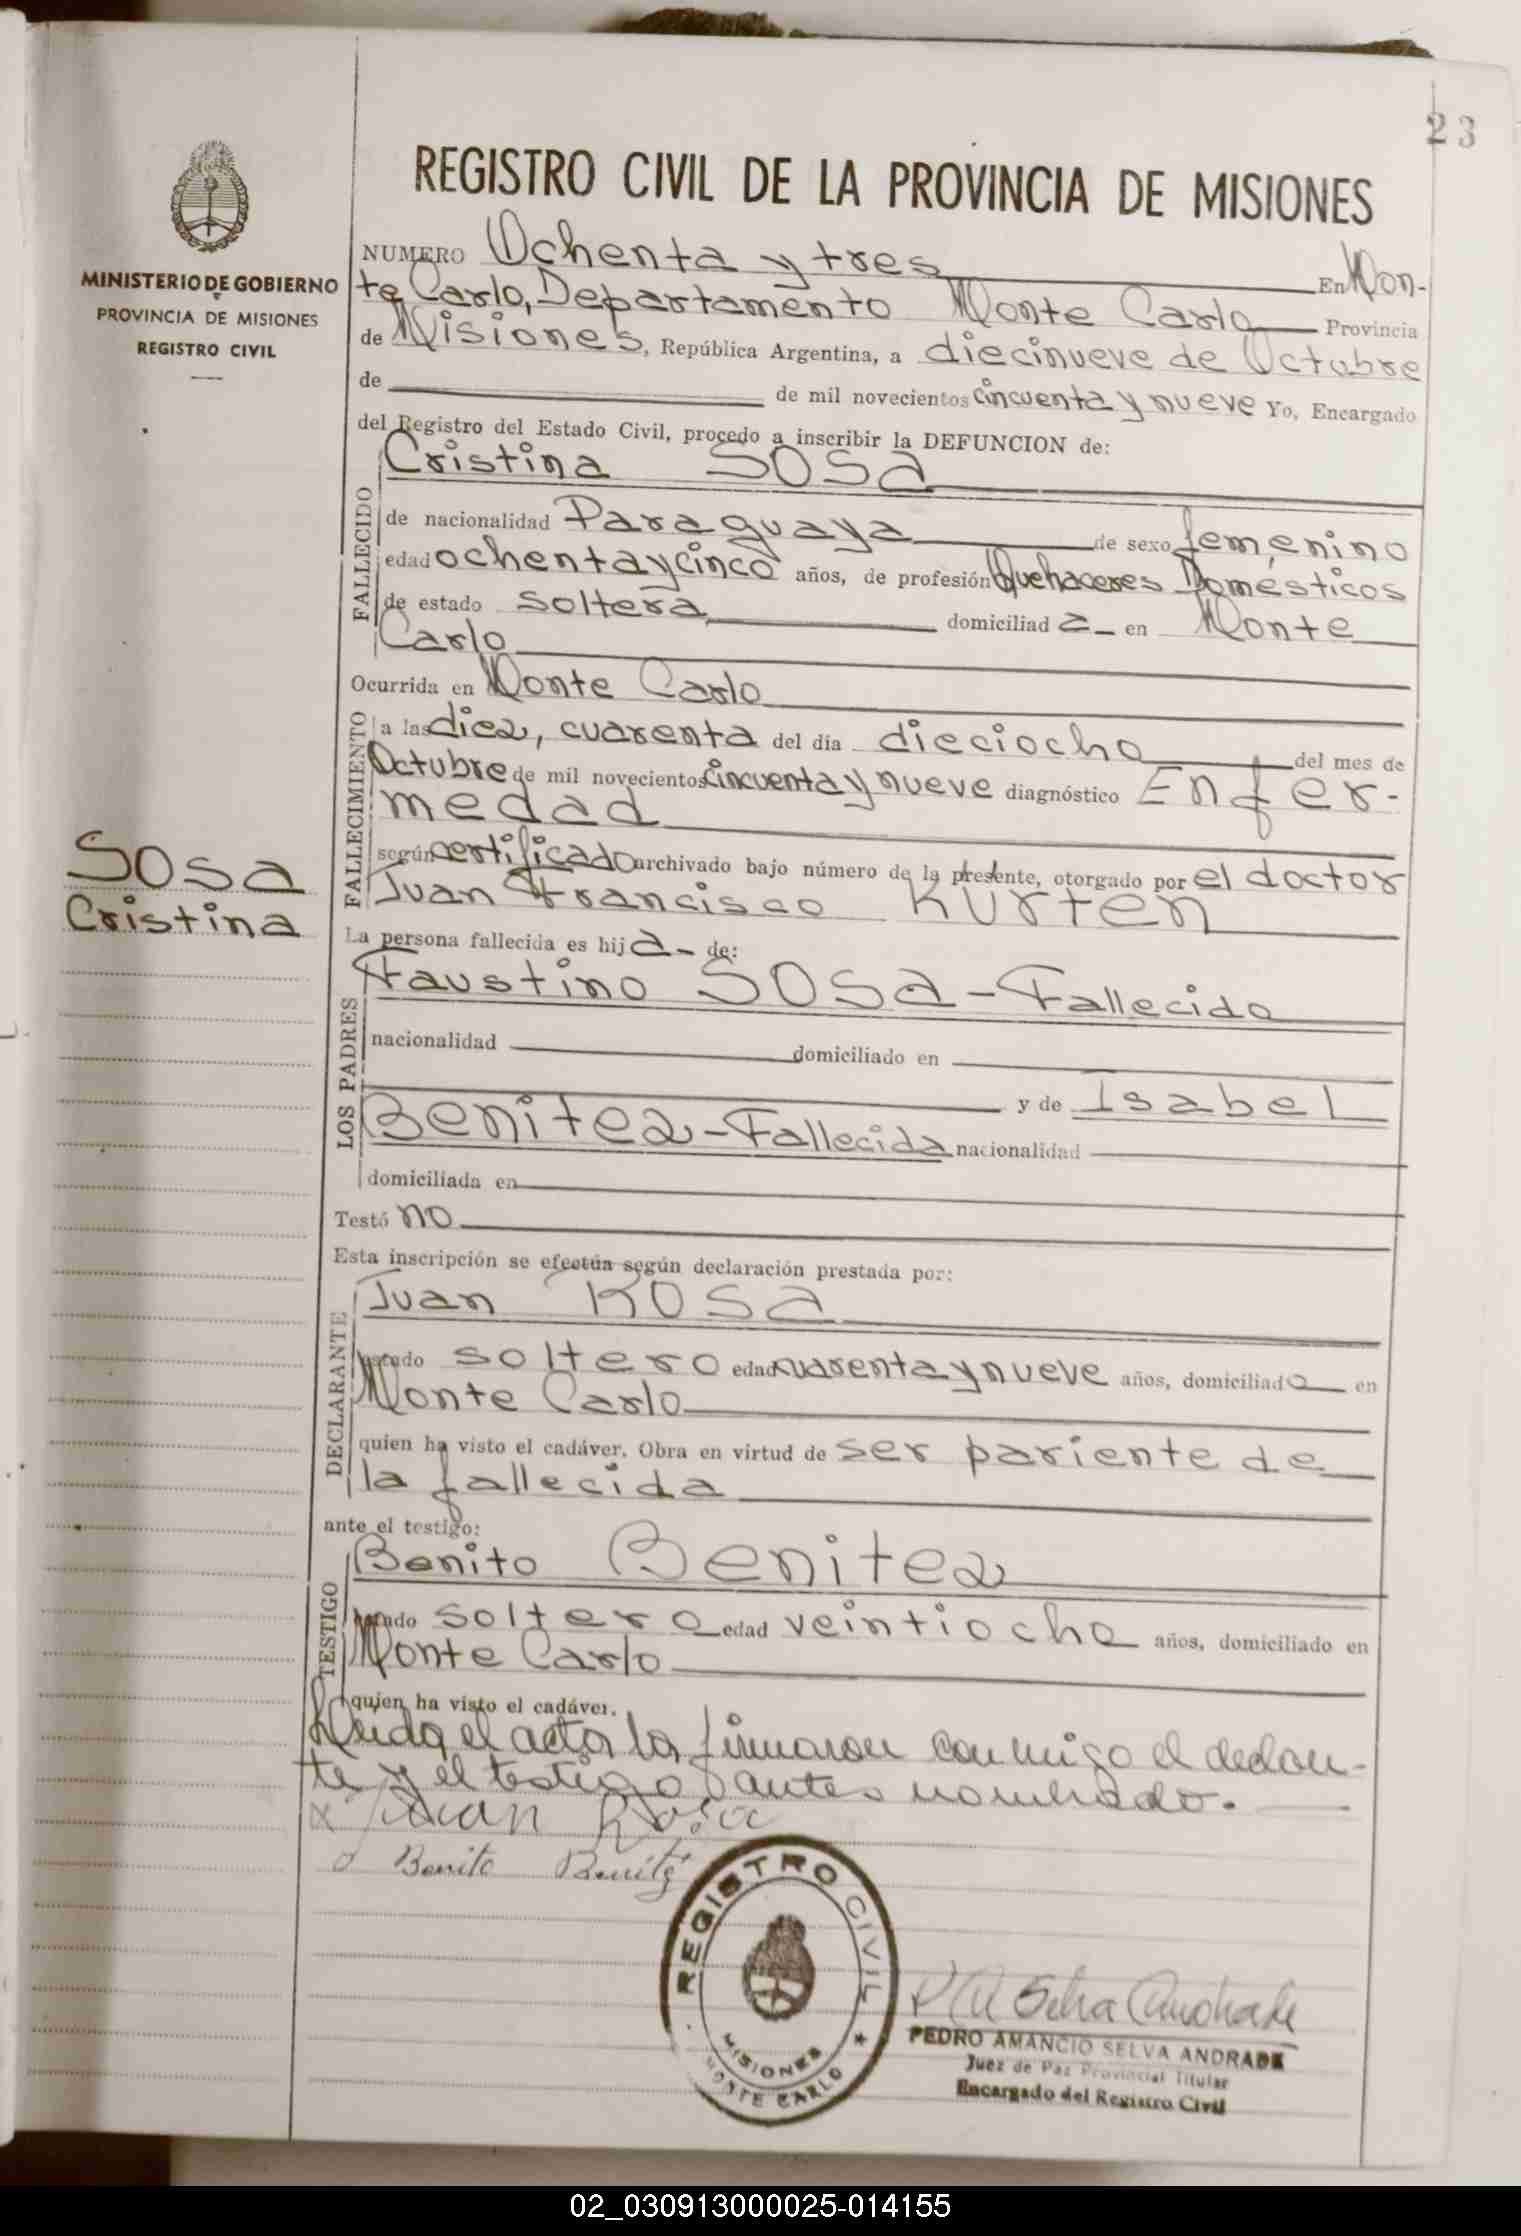 23
REGISTRO CIVIL DE LA PROVINCIA DE MISIONES
MINISTERIO DE GOBIERNO
PROVINCIA DE MISIONES
REGISTRO CIVIL
NUMERO Ochenta y tres En Mon-
te Carlo, Departamento Monte Carlo Provincia
de Misiones, República Argentina, a diecinueve de Octubre
de de mil novecientos cincuenta y nueve Yo, Encargado
del Registro del Estado Civil, procedo a inscribir la DEFUNCION de:
FALLECIDO
Cristina SOSA
de nacionalidad Paraguaya de sexo femenino
edad ochenta y cinco años, de profesión Quehaceres Domésticos
de estado soltera domiciliad a en Monte
Carlo
Ocurrida en Monte Carlo
FALLECIMIENTO
a las diez, cuarenta del día dieciocho del mes de
Octubre de mil novecientos cincuenta y nueve diagnóstico Enfer-
medad
según certificado archivado bajo número de la presente, otorgado por el doctor
Juan Francisco KURTEN
SOSA
Cristina
La persona fallecida es hij a de:
LOS PADRES
Faustino SOSA - Fallecido
nacionalidad domiciliado en
y de Isabel
Benitez - Fallecida nacionalidad
domiciliada en
Testó no
Esta inscripción se efectúa según declaración prestada por:
DECLARANTE
Juan ROSA
estado soltero edad cuarenta y nueve años, domiciliado en
Monte Carlo
quien ha visto el cadáver. Obra en virtud de ser pariente de
la fallecida
ante el testigo:
TESTIGO
Benito Benitez
estado soltero edad veintiocho años, domiciliado en
Monte Carlo
quien ha visto el cadáver.
Leida el acta la firmaron conmigo el declaran-
te y el testigo antes nombrado.
Juan Rosa
Benito Benitez
REGISTRO CIVIL
MISIONES
MONTE CARLO
P A Selva Andrade
PEDRO AMANCIO SELVA ANDRADE
Juez de Paz Provincial Titular
Encargado del Registro Civil
02_030913000025-014155